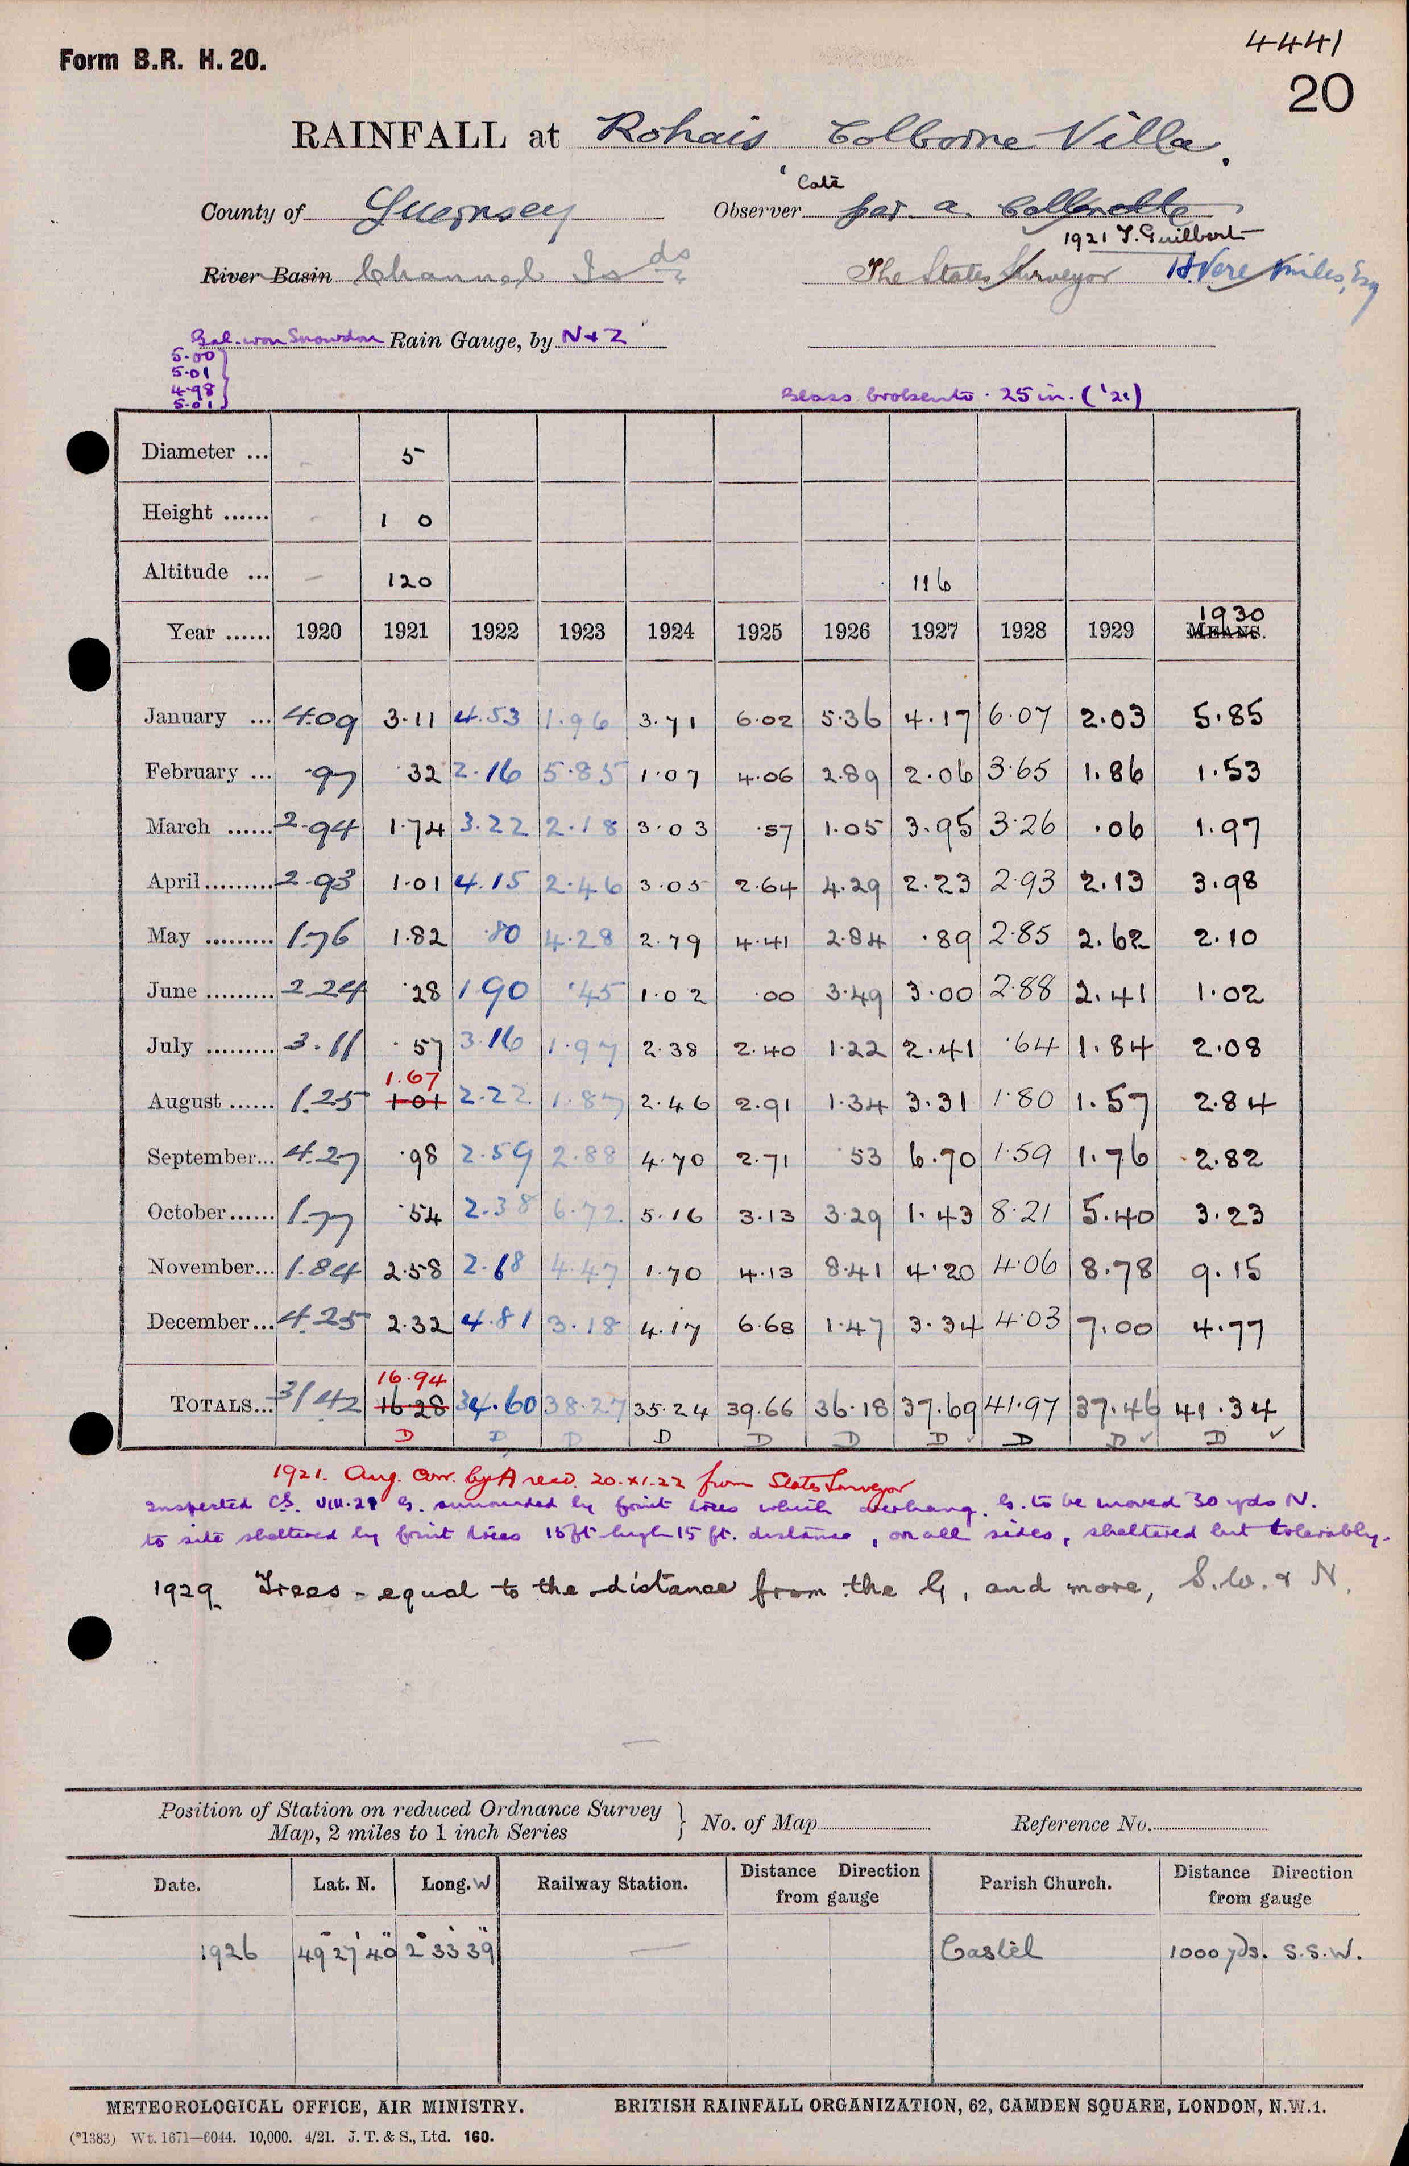 Form B.R. H. 20.
4441
20
RAINFALL at Rohais Colborne Villa.
County of Guernsey Observer late
1921 T. Guilbert
River Basin Channel Is ds The States Surveyor H. Vere Miles, Esq
Snowdon Rain Gauge, by N & Z
5.00
5.01
4.98
5.01
25 in. ('21)
Diameter ... 5
Height ...... 1 0
Altitude ... — 120 116
Year ...... 1920 1921 1922 1923 1924 1925 1926 1927 1928 1929 MEANS. 1930
January ... 4.09 3.11 4.53 1.96 3.71 6.02 5.36 4.17 6.07 2.03 5.85
February ... .97 .32 2.16 5.85 1.07 4.06 2.89 2.06 3.65 1.86 1.53
March ...... 2.94 1.74 3.22 2.18 3.03 .57 1.05 3.95 3.26 .06 1.97
April ......... 2.93 1.01 4.15 2.46 3.05 2.64 4.29 2.23 2.93 2.13 3.98
May ......... 1.76 1.82 .80 4.28 2.79 4.41 2.84 .89 2.85 2.62 2.10
June ......... 2.24 .28 1.90 .45 1.02 .00 3.49 3.00 2.88 2.41 1.02
July ......... 3.11 .57 3.16 1.97 2.38 2.40 1.22 2.41 .64 1.84 2.08
1.67
August ...... 1.25 1.01 2.22 1.87 2.46 2.91 1.34 3.31 1.80 1.57 2.84
September... 4.27 .98 2.59 2.88 4.70 2.71 .53 6.70 1.59 1.76 2.82
October...... 1.77 .54 2.38 6.72 5.16 3.13 3.29 1.43 8.21 5.40 3.23
November... 1.84 2.58 2.68 4.47 1.70 4.13 8.41 4.20 4.06 8.78 9.15
December... 4.25 2.32 4.81 3.18 4.17 6.68 1.47 3.34 4.03 7.00 4.77
16.94
TOTALS... 31.42 16.28 34.60 38.27 35.24 39.66 36.18 37.69 41.97 37.46 41.34
D D D D D D D ✓ D D ✓ D ✓
1921. Aug. corr. by A recd. 20.XI.22 from States Surveyor
Inspected C.S. VIII.21 G. surrounded by fruit trees which overhang. G. to be moved 30 yds N.
to site sheltered by fruit trees 15ft high 15 ft. distance, on all sides, sheltered but tolerably.
1929 Trees - equal to the distance from the G, and more, S.W. & N.
Position of Station on reduced Ordnance Survey Map, 2 miles to 1 inch Series } No. of Map Reference No.
Date. Lat. N. Long. W Railway Station. Distance Direction from gauge Parish Church. Distance Direction from gauge
1926 49° 27' 40" 2° 33' 39" — Castel 1000 yds. S.S.W.
METEOROLOGICAL OFFICE, AIR MINISTRY. BRITISH RAINFALL ORGANIZATION, 62, CAMDEN SQUARE, LONDON, N.W.1.
(*1383) Wt. 1671—6044. 10,000. 4/21. J. T. & S., Ltd. 160.